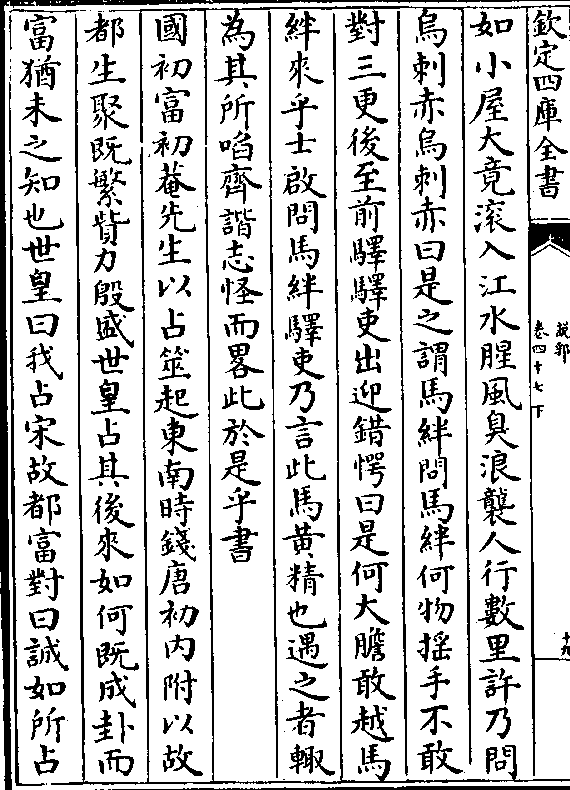 欽定四庫全書
說郛
卷四十七下
十九
如小屋大竟滚入江水腥風臭浪襲人行數里許乃問
烏刺赤烏刺赤曰是之謂馬絆問馬絆何物揺手不敢
對三更後至前驛驛吏出迎錯愕曰是何大膽敢越馬
絆來乎士啟問馬絆驛吏乃言此馬黄精也遇之者輙
為其所啗齊諧志怪而畧此於是乎書
國初富初菴先生以占筮起東南時錢唐初内附以故
都生聚既繁貲力殷盛世皇占其後來如何既成卦而
富猶未之知也世皇曰我占宋故都富對曰誠如所占